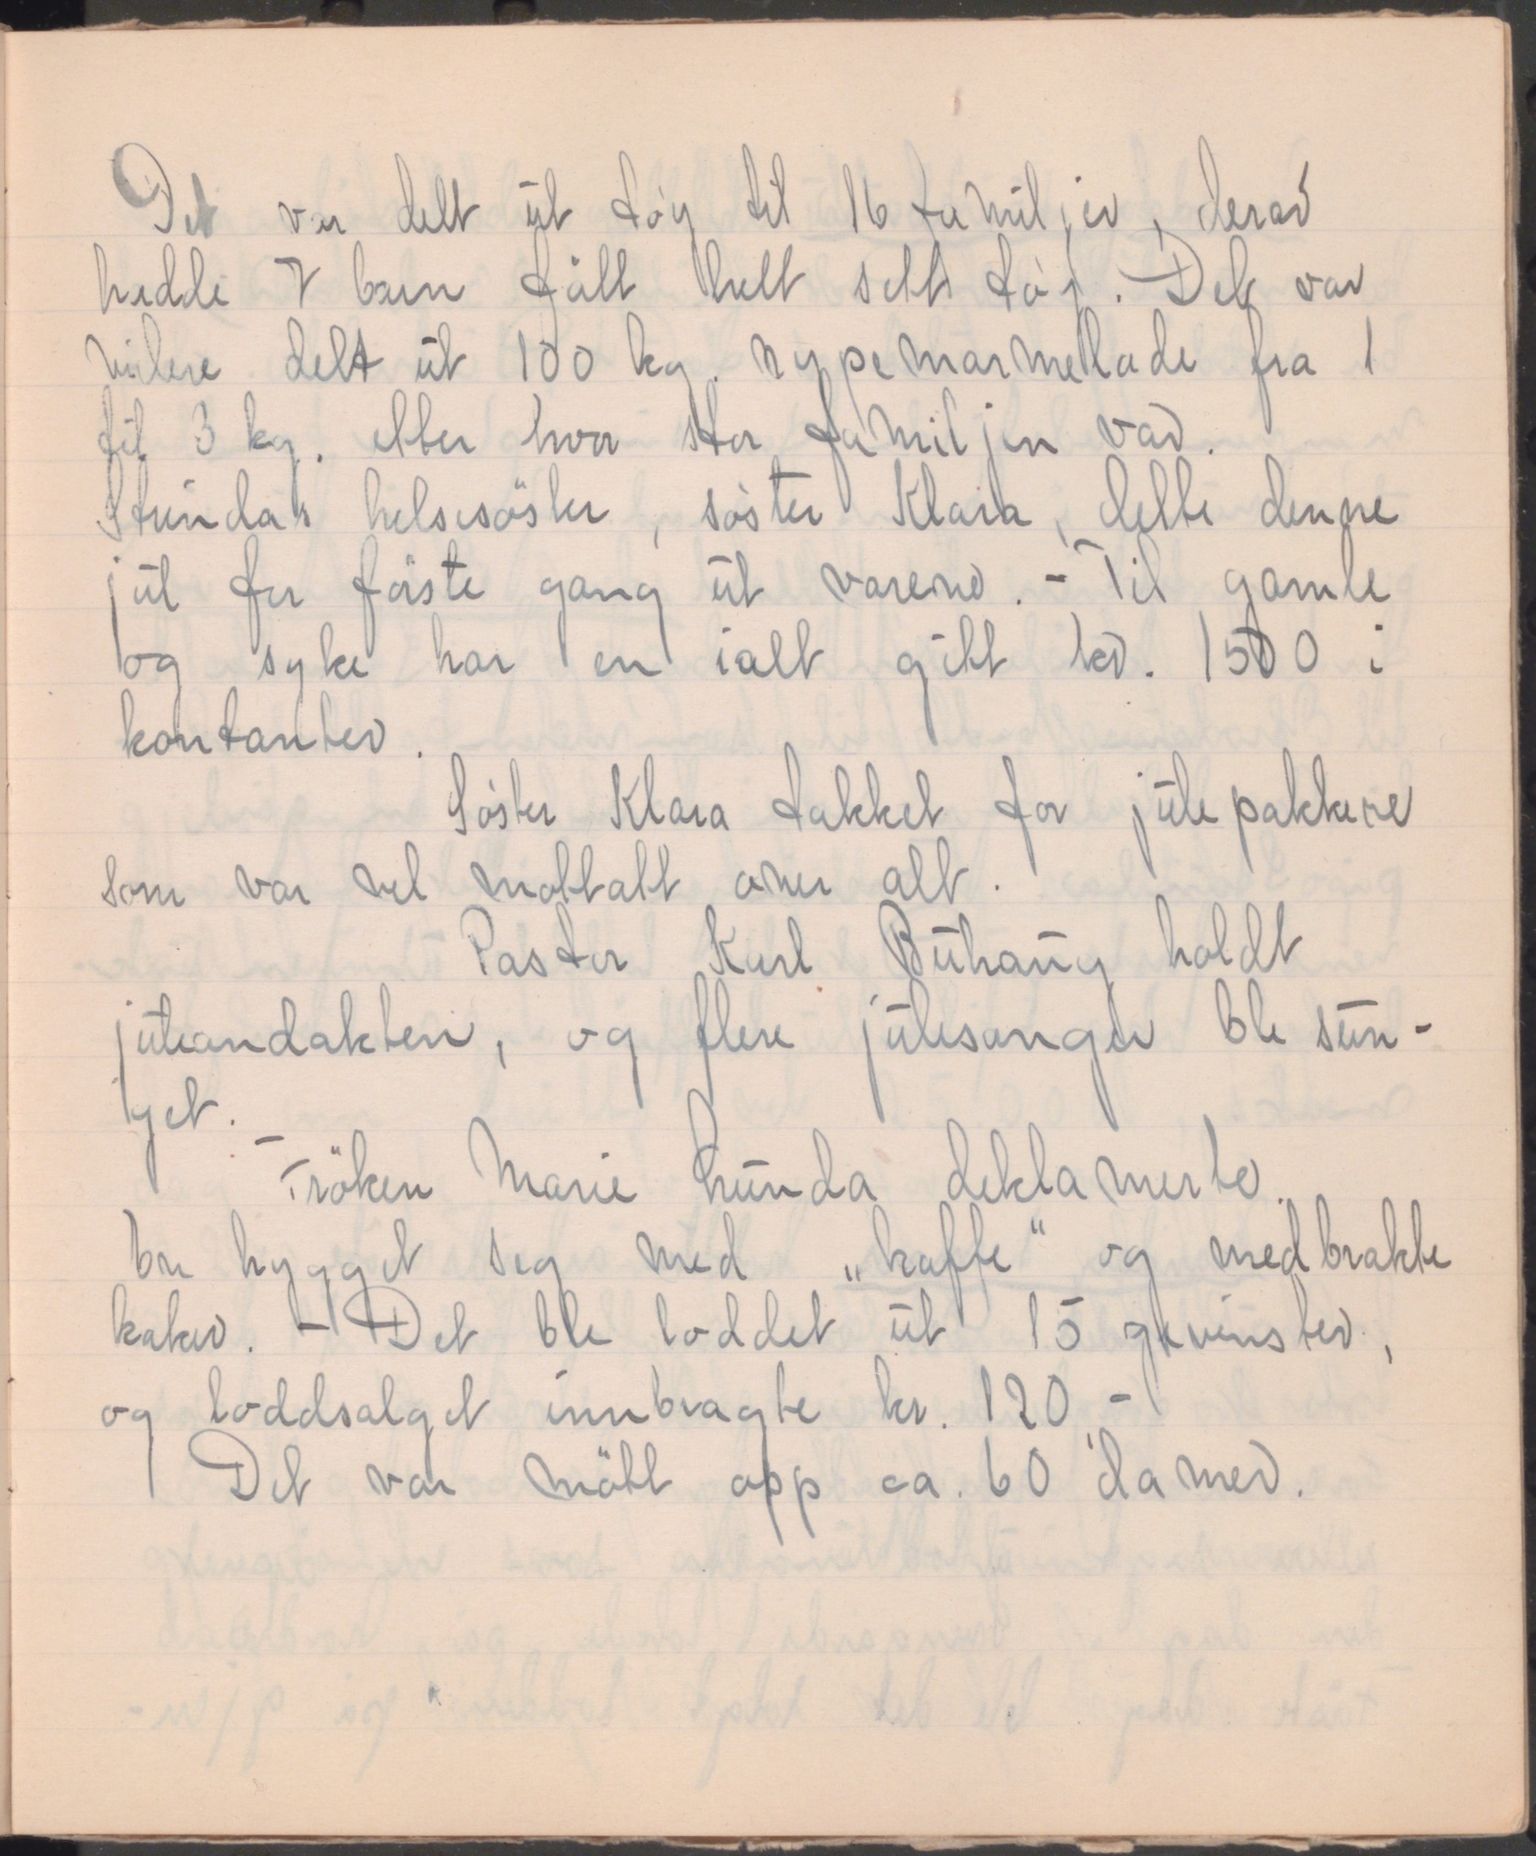 Det var delt ut tøy til 16 familjer, derav
hadde 7 barn fått helt sett tøy. Det var
videre delt ut 100 kg. nypemarmelade fra 1
til 3 kg. etter hvor stor familjen var.
Strindas helsesöster, söster Klara, delte denne
jul for förste gang ut varene. - Til gamle
og syke har en ialt gitt kr. 1500 i
kontanter.
Söster Klara takket for julepakkene
som var vel mottatt over alt.
Pastor Karl Buhaug holdt
juleandakten, og flere julesanger ble sun-
get.
Fröken Marie Lunda deklamerte.
En hygget seg med „kaffe" og medbrakte
kaker. - Det ble loddet ut 15 gevinster,
og loddsalget innbragte kr. 120,-
Det var mött opp ca. 60 damer.